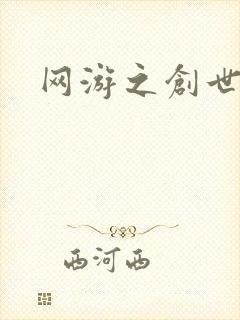 网游之創世
西河西